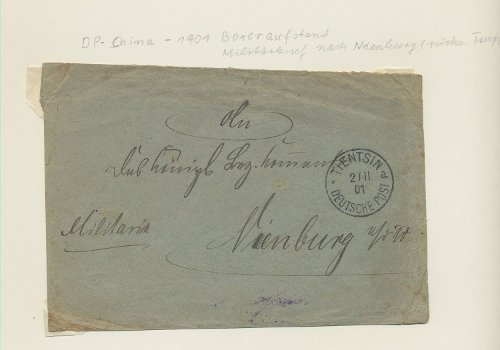 DP-China - 1901 Boxeraufstand
Militärbrief nach Nienburg (reichs.
An
Das Königl. Bez. Komman
Militaria
Nienburg a/W
TIENTSIN
2/11
01
DEUTSCHE POST